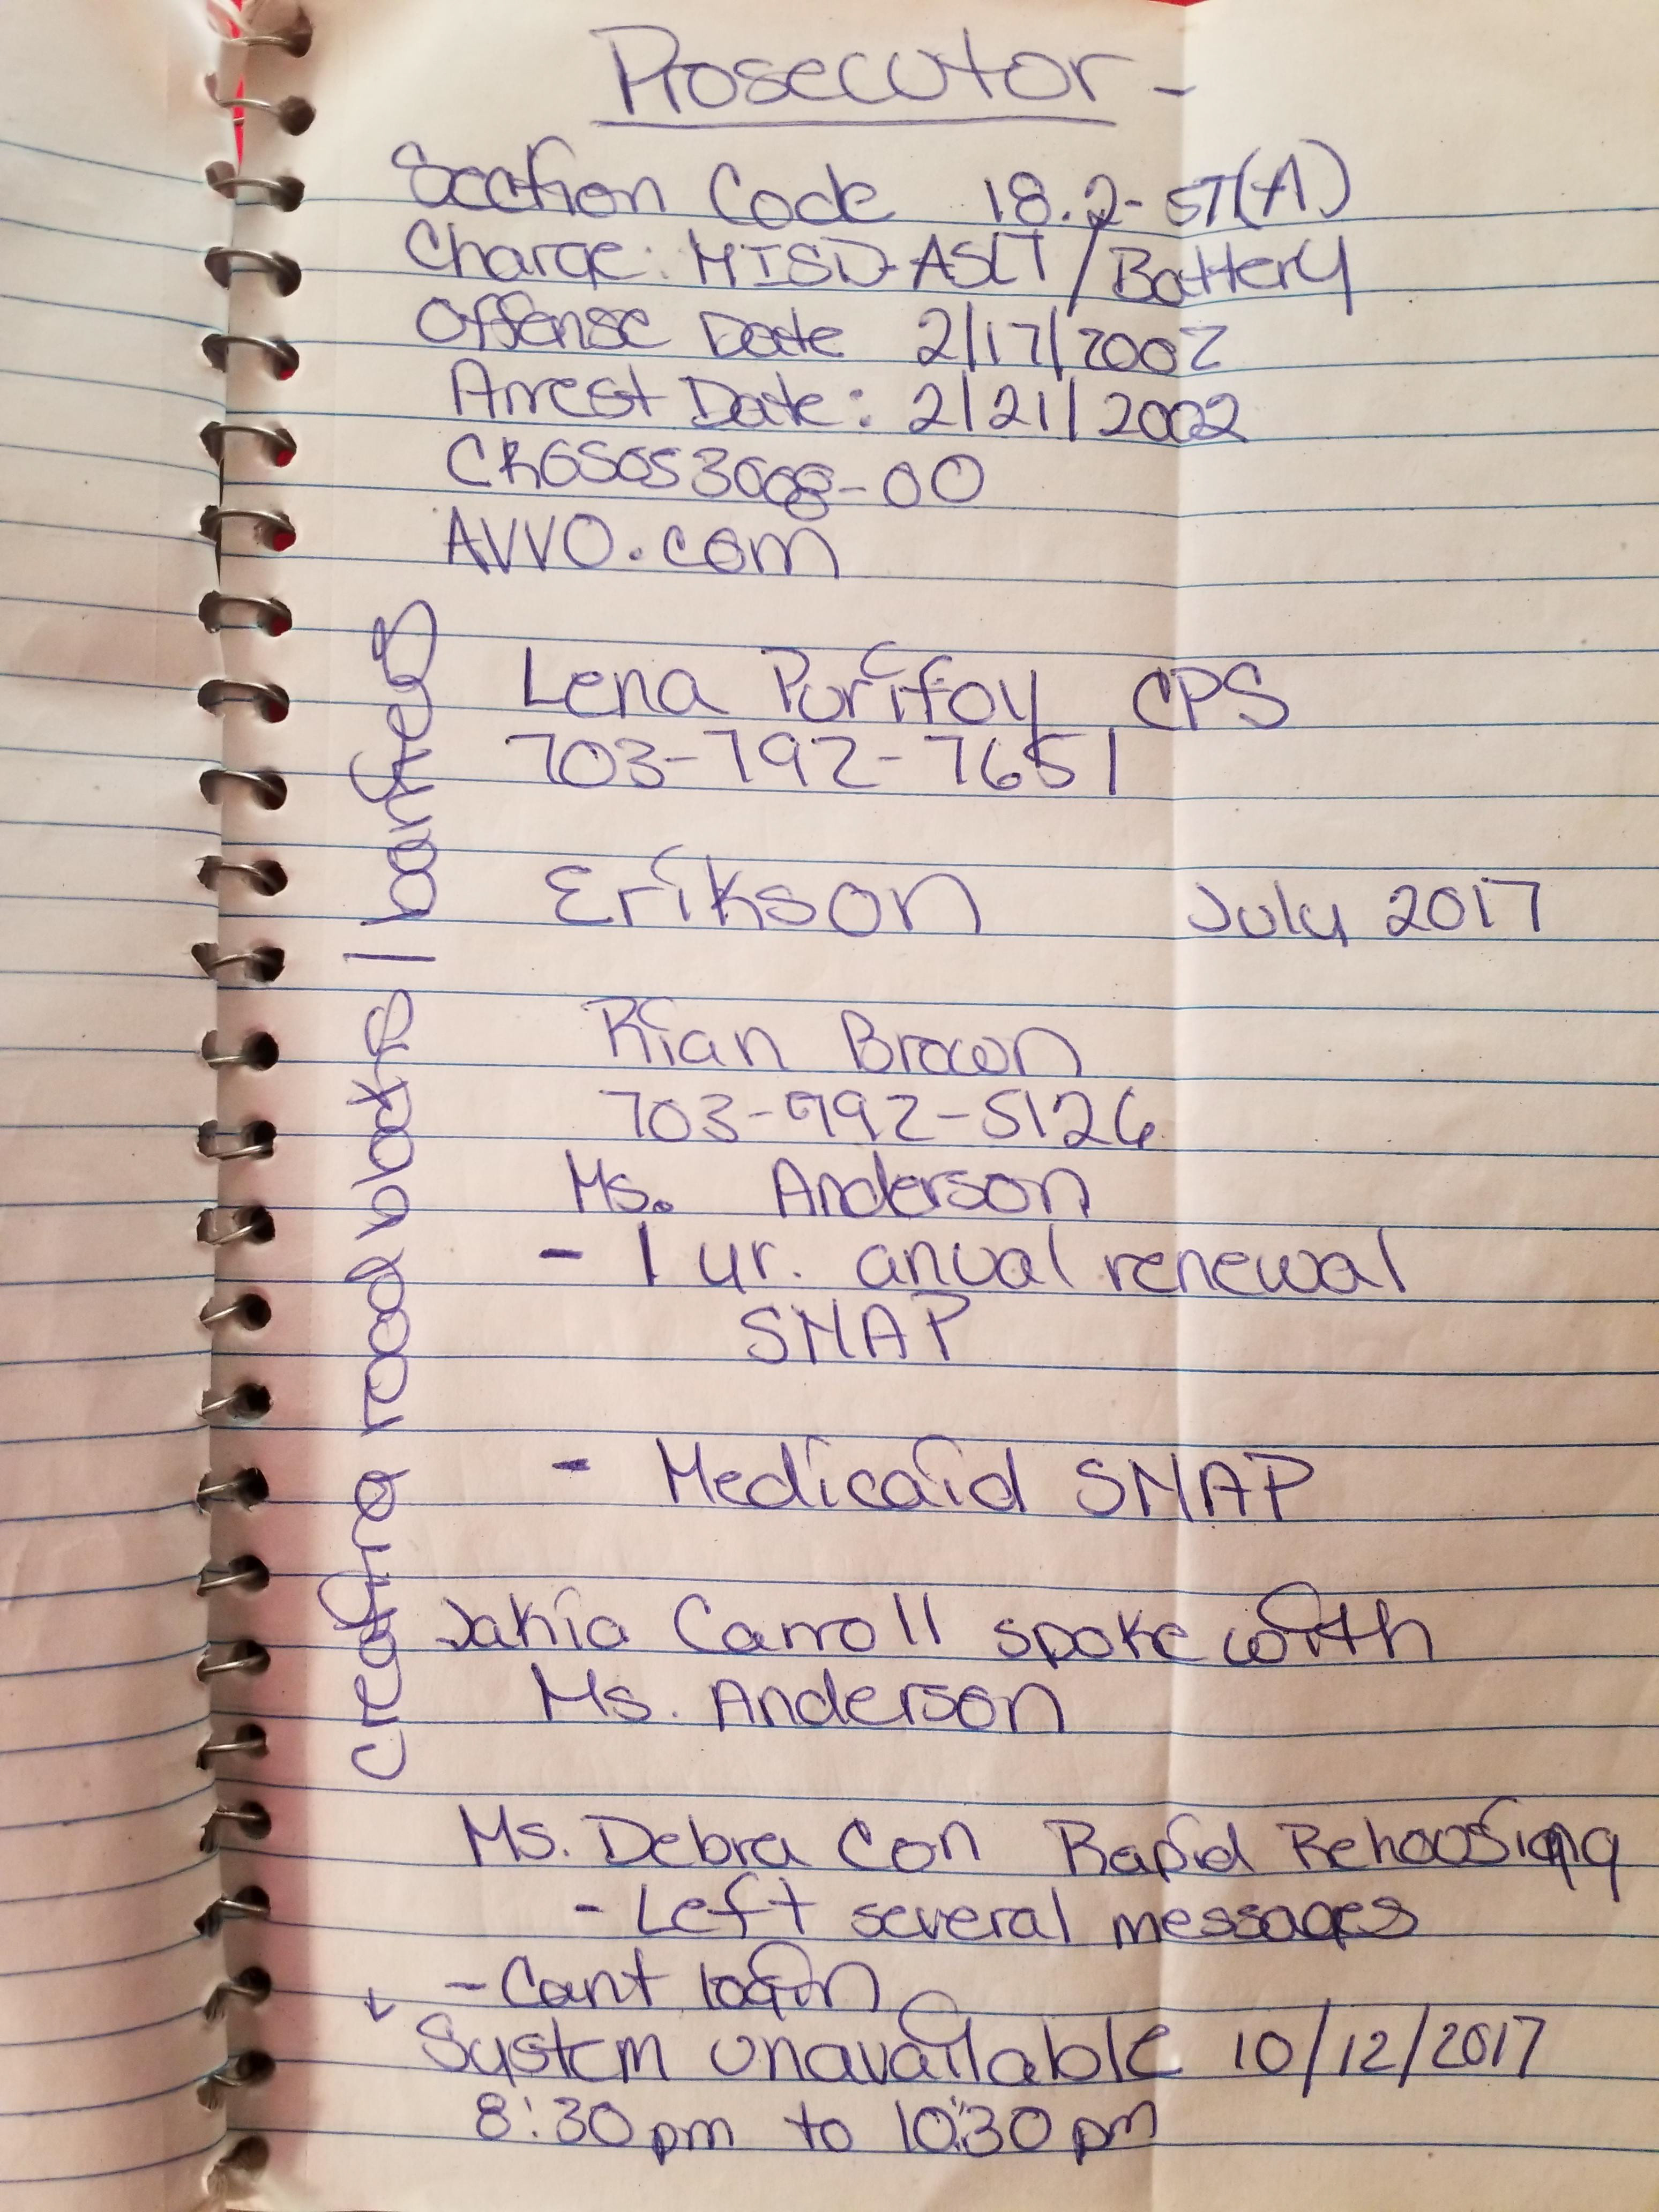 Prosecutor -
Section Code 18.2-57(A)
Charge: MISD-ASLT/Battery
Offense Date 2/17/2002
Arrest Date: 2/21/2002
AVVO.com
Lena Purifoy CPS
703-792-7651
Erikson July 2017
Rian Brown
703-792-5126
Ms. Anderson
- 1 yr. anual renewal
SNAP
- Medicaid SNAP
Jakia Carroll spoke with
Ms. Anderson
Ms. Debra Con Rapid Rehousing
- Left several messages
- Cant login
↓ System unavailable 10/12/2017
8:30pm to 10:30pm
creating road blocks / barriers